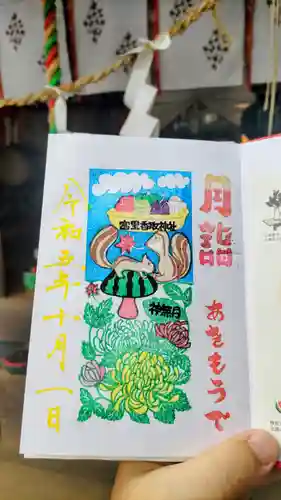 月詣
あきもうで
富里香取神社
神無月
令和五年十月一日